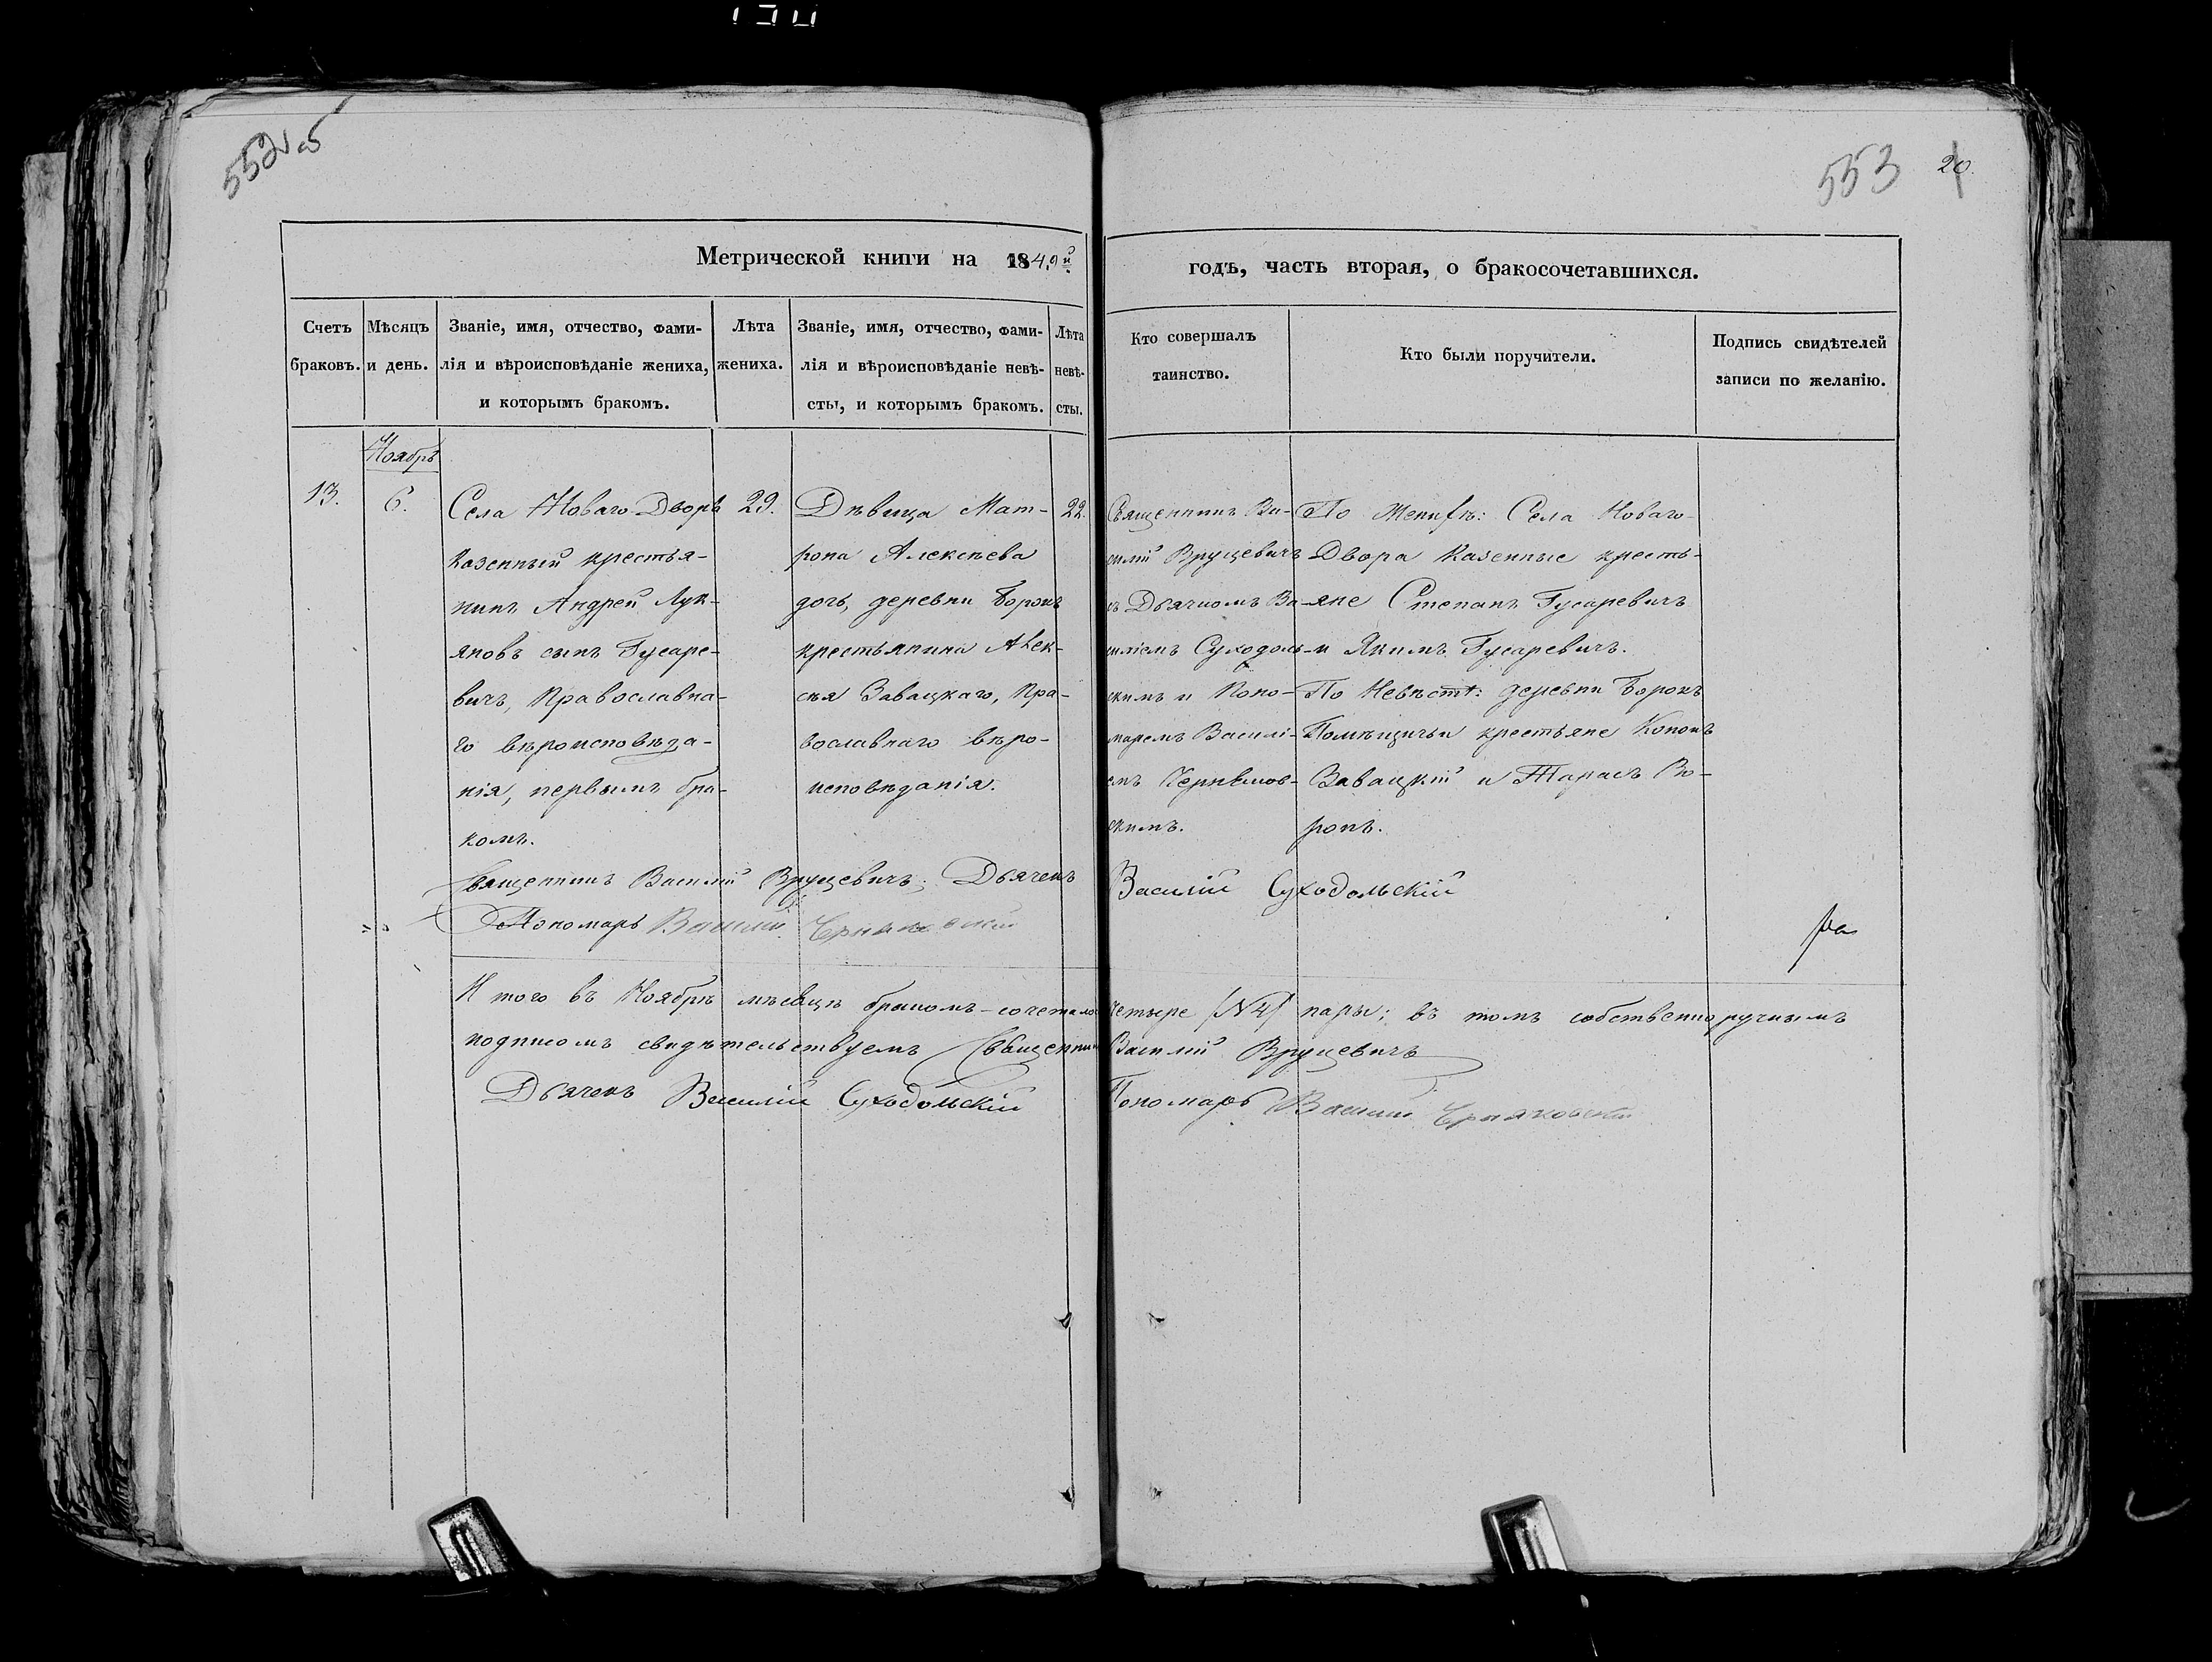 552 об
553 20
Метрической книги на 1849й годъ, часть вторая, о бракосочетавшихся.
Счетъ браковъ.
Мѣсяцъ и день.
Званіе, имя, отчество, фами-
лія и вѣроисповѣданіе жениха,
и которымъ бракомъ.
Лѣта
жениха.
Званіе, имя, отчество, фами-
лія и вѣроисповѣданіе невѣ-
сты, и которымъ бракомъ.
Лѣта
невѣ-
сты.
Кто совершалъ
таинство.
Кто были поручители.
Подпись свидѣтелей
записи по желанію.
Ноябрь
13.
6.
Села Новаго Двора
казенный крестья-
нинъ Андрей Лук-
яновъ сынъ Гусаре-
вичъ, Православна-
го вѣроисповѣда-
нія, первымъ бра-
комъ.
29.
Дѣвица Мат-
рона Алексѣева
дочь, деревни Борокъ
крестьянина Алек-
сѣя Завацкаго, Пра-
вославнаго вѣро-
исповѣданія.
22.
Священникъ Ва-
силій Вруцевичъ
съ Дьячкомъ Ва-
силіемъ Суходоль-
скимъ и Поно-
маремъ Василі-
емъ
скимъ.
По Женихѣ: Села Новаго-
Двора казенные кресть-
яне Степанъ Гусаревичъ
и Якимъ Гусаревичъ.
По Невѣстѣ: деревни Борокъ
Помѣщичьи крестьяне Кононъ
Завацкій и Тарасъ Во-
ронъ.
Священникъ Василій Вруцевичъ; Дьячекъ Василій Суходольскій
Пономарь Василій
И того въ Ноябрѣ мѣсяцѣ бракомъ сочетало четыре /№4/ пары; въ томъ собственноручнымъ
подписомъ свидѣтельствуемъ Священникъ Василій Вруцевичъ
Дьячекъ Василій Суходольскій Пономарь Василій